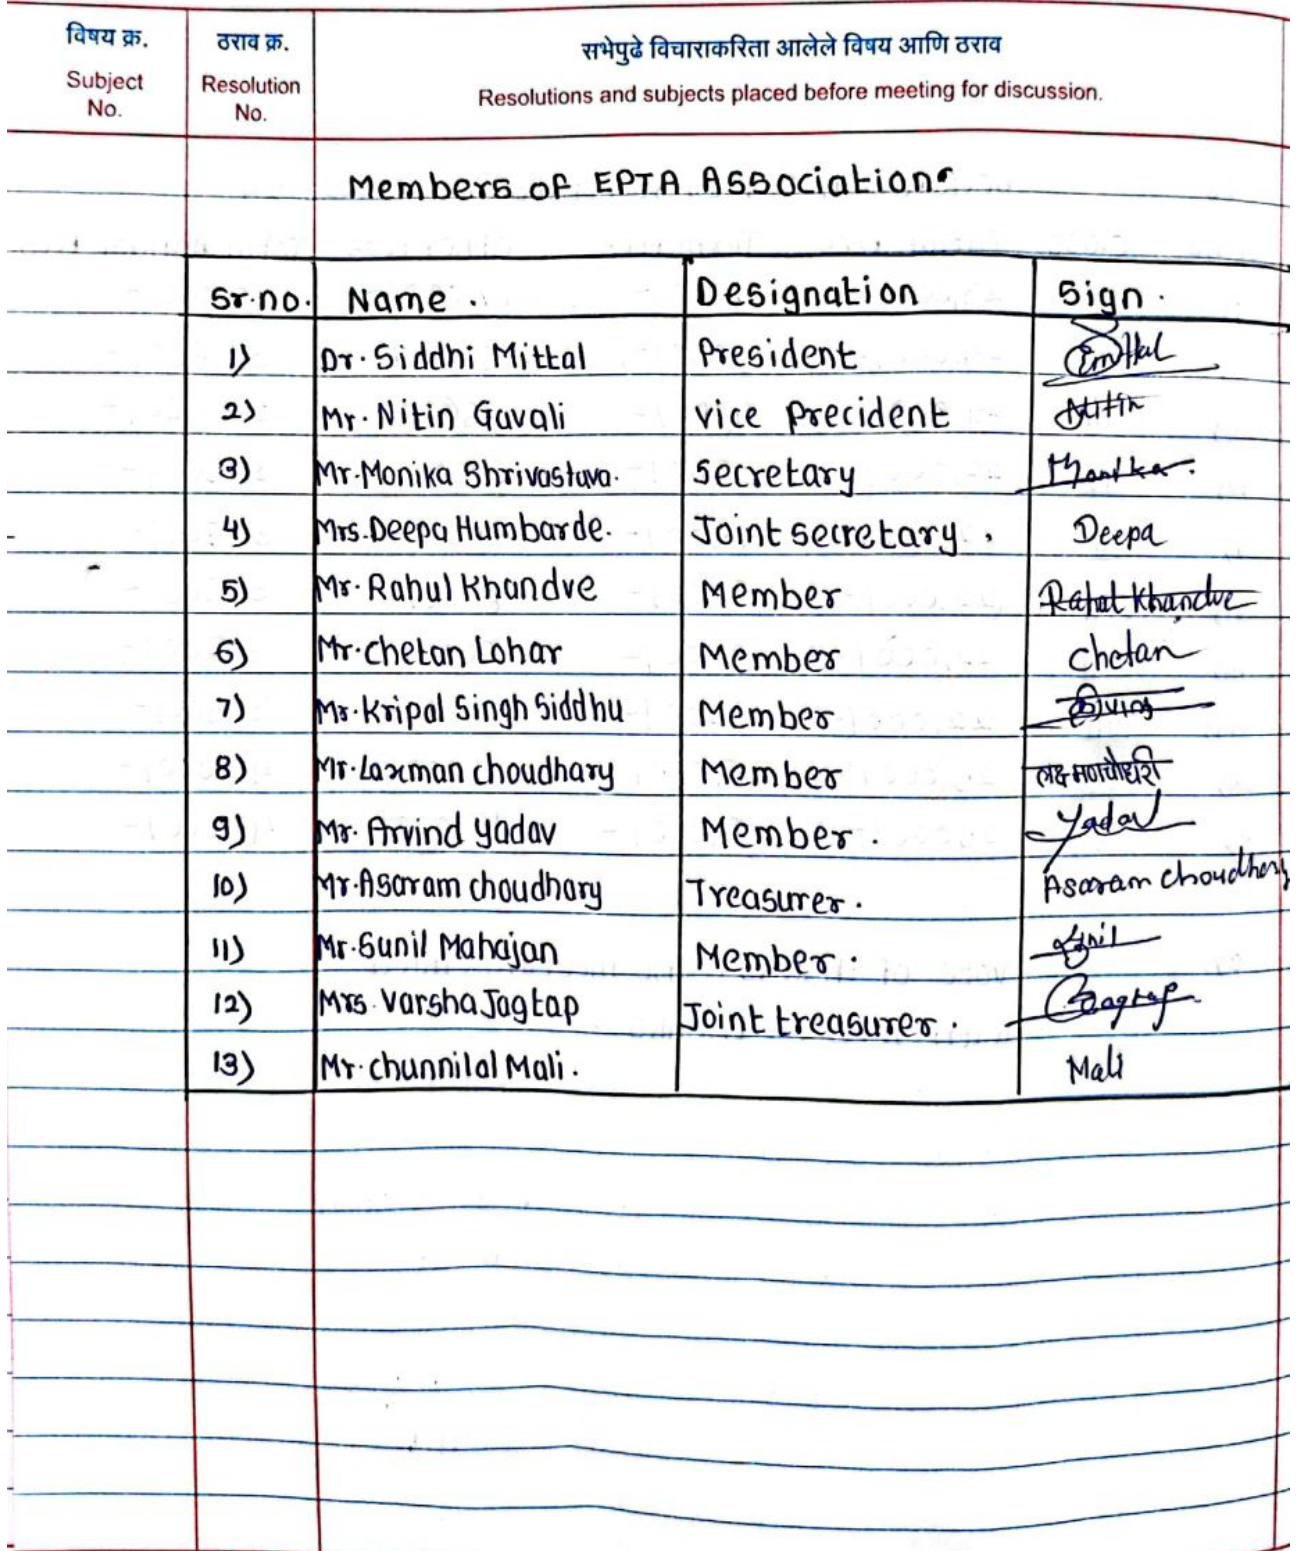 विषय क्र. ठराव क्र. सभेपुढे विचाराकरिता आलेले विषय आणि ठराव
Subject No. Resolution No. Resolutions and subjects placed before meeting for discussion.
Members of EPTA Association.
Sr.no. Name. Designation Sign.
1) Dr. Siddhi Mittal President
2) Mr. Nitin Gavali vice precident Nitin
3) Mr. Monika Shrivastava. Secretary Monika.
4) Mrs. Deepa Humbarde. Joint secretary. Deepa
5) Mr. Rahul Khandve Member Rahul Khandve
6) Mr. Chetan Lohar Member Chetan
7) Mr. Kripal Singh Siddhu Member
8) Mr. Laxman choudhary Member लक्ष्मणचौधरी
9) Mr. Arvind yadav Member. Yadav
10) Mr. Asaram choudhary Treasurer. Asaram choudhary
11) Mr. Sunil Mahajan Member. Sunil
12) Mrs. Varsha Jagtap Joint treasurer.
13) Mr. chunnilal Mali. Mali